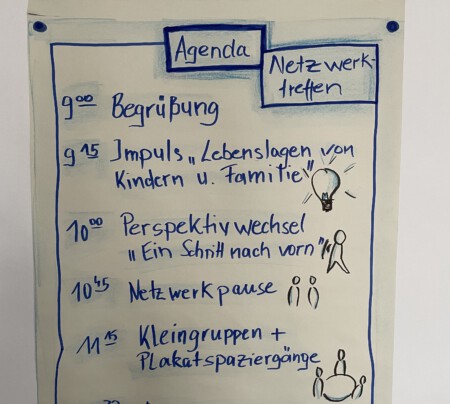 Agenda
Netzwerk-
treffen
9⁰⁰ Begrüßung
9¹⁵ Impuls „Lebenslagen von
Kindern u. Familie"
10⁰⁰ Perspektivwechsel
"Ein Schritt nach vorn"
10⁴⁵ Netzwerkpause
11¹⁵ Kleingruppen +
Plakatspaziergänge